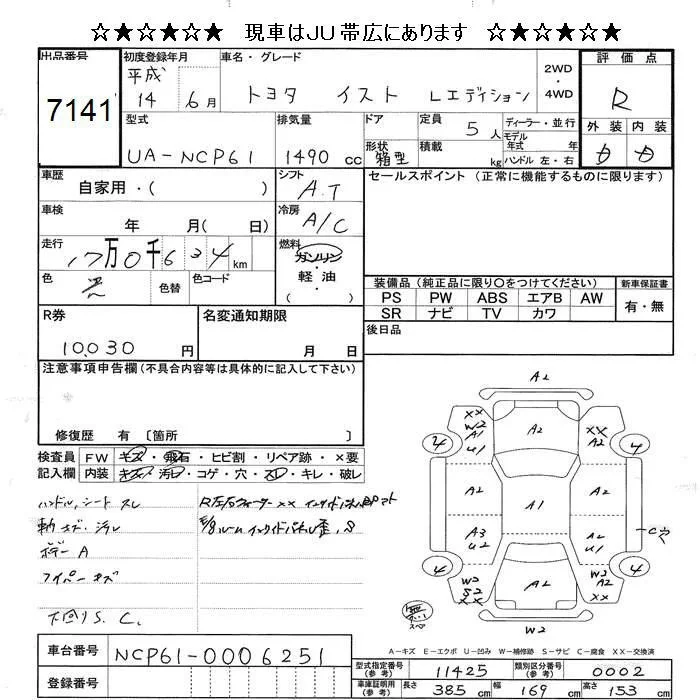 ☆★☆★☆★ 現車はJU帯広にあります ☆★☆★☆★
出品番号 7141
初度登録年月 平成 14 6月
車名・グレード トヨタ イスト Lエディション
2WD・4WD
評価点 R
外装 内装
D D
型式 UA-NCP61
排気量 1490cc
ドア 形状 箱型
定員 5人
積載 kg
ディーラー・並行
モデル年式 年
ハンドル 左・右
車歴 自家用・( )
シフト A.T
セールスポイント (正常に機能するものに限ります)
車検 年 月( 日)
冷房 A/C
走行 17万0千634km
燃料 ガソリン・軽油 ( )
色 色替 色コード
装備品 (純正品に限り○をつけてください)
新車保証書
PS PW ABS エアB AW
有・無
SR ナビ TV カワ
R券 10,030円
名変通知期限 月 日
後日品
注意事項申告欄 (不具合内容等は具体的に記入して下さい)
修復歴 有 〔箇所 〕
検査員記入欄
FW キズ・飛石・ヒビ割・リペア跡・×要
内装 キズ・汚レ・コゲ・穴・スレ・キレ・破レ
ハンドル、シート スレ
キズ・汚レ
ボデー A
ワイパー キズ
下回りS. C.
A2
XX W2 A1 U1
A2
XX A2
4 4
A2 A1 A2
A3 U2
A2 U1
4 4
W2 S2 XX
A2
W2 A2 XX
W2
無 スペ
A-キズ E-エクボ U-凹み W-補修跡 S-サビ C-腐食 XX-交換済
車台番号 NCP61-0006251
登録番号
型式指定番号(参考) 11425
類別区分番号(参考) 0002
車庫証明用(参考) 長さ 385cm 幅 169cm 高さ 153cm